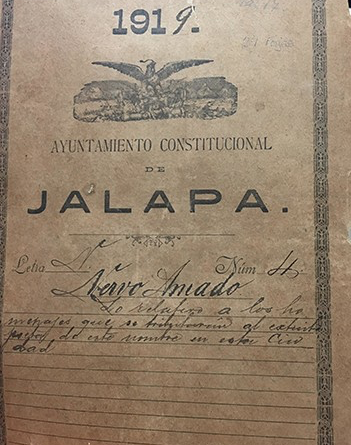 1919.
AYUNTAMIENTO CONSTITUCIONAL
DE
JALAPA.
Letra N. Núm 4.
Nervo Amado.
Lo relativo a los ho
menajes que se tributaron al extinto
poeta de este nombre en esta Ciu
dad.